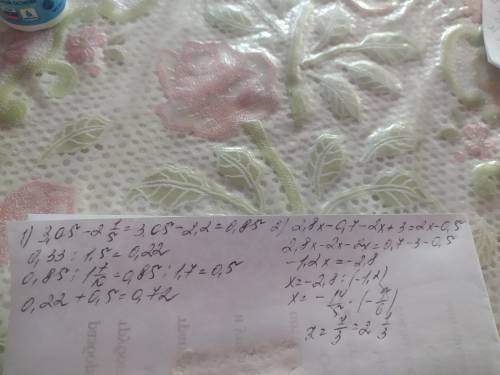 1) 3,05-2 1/5=3,05-2,2=0,85
0,33:1,5=0,22
0,85:1,7=0,5
0,22+0,5=0,72
2) 2,8x-0,7-2x+3=2x-0,5
2,8x-2x-2x=0,7-3-0,5
-1,2x=-2,8
x=-2,8:(-1,2)
x=-14/5:(-6/5)
x=7/3=2 1/3